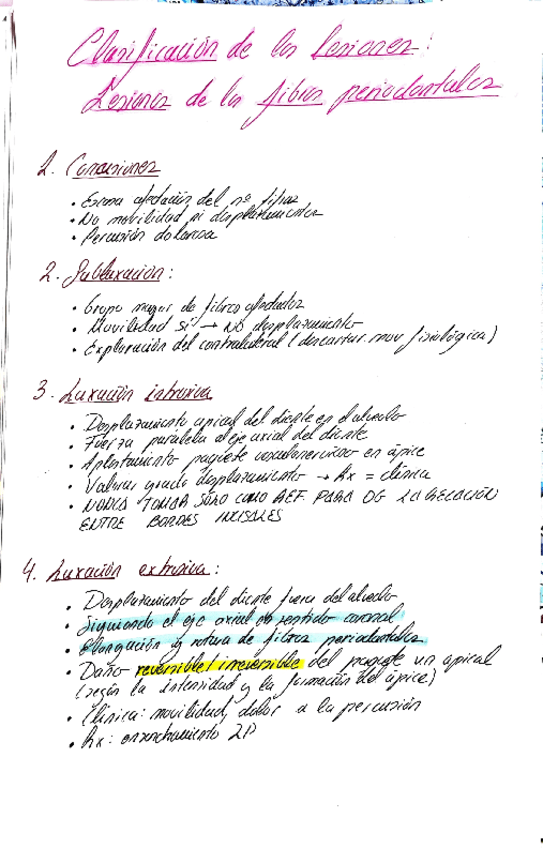 Clasificación de las Lesiones:
Lesiones de las fibras periodontales
1. Concusiones
• Escasa afectación del nº fibras
• No movilidad ni desplazamientos
• Percusión dolorosa
2. Subluxación:
• Grupo mayor de fibras afectadas
• Movilidad sí → NO desplazamiento
• Exploración del contralateral (descartar mov fisiológica)
3. Luxación intrusiva
• Desplazamiento apical del diente en el alveolo
• Fuerza paralela al eje axial del diente
• Aplastamiento paquete vasculonervioso en ápice
• Valorar grado desplazamiento → Rx = clínica
• NUNCA TOMAR SÓLO COMO REF. PARA DG LA RELACIÓN
ENTRE BORDES INCISALES
4. Luxación extrusiva:
• Desplazamiento del diente fuera del alveolo
• Siguiendo el eje axial en sentido coronal
• Elongación y rotura de fibras periodontales
• Daño reversible/irreversible del paquete vn apical
(según la intensidad y la formación del ápice)
• Clínica: movilidad, dolor a la percusión
• Rx: ensanchamiento LP